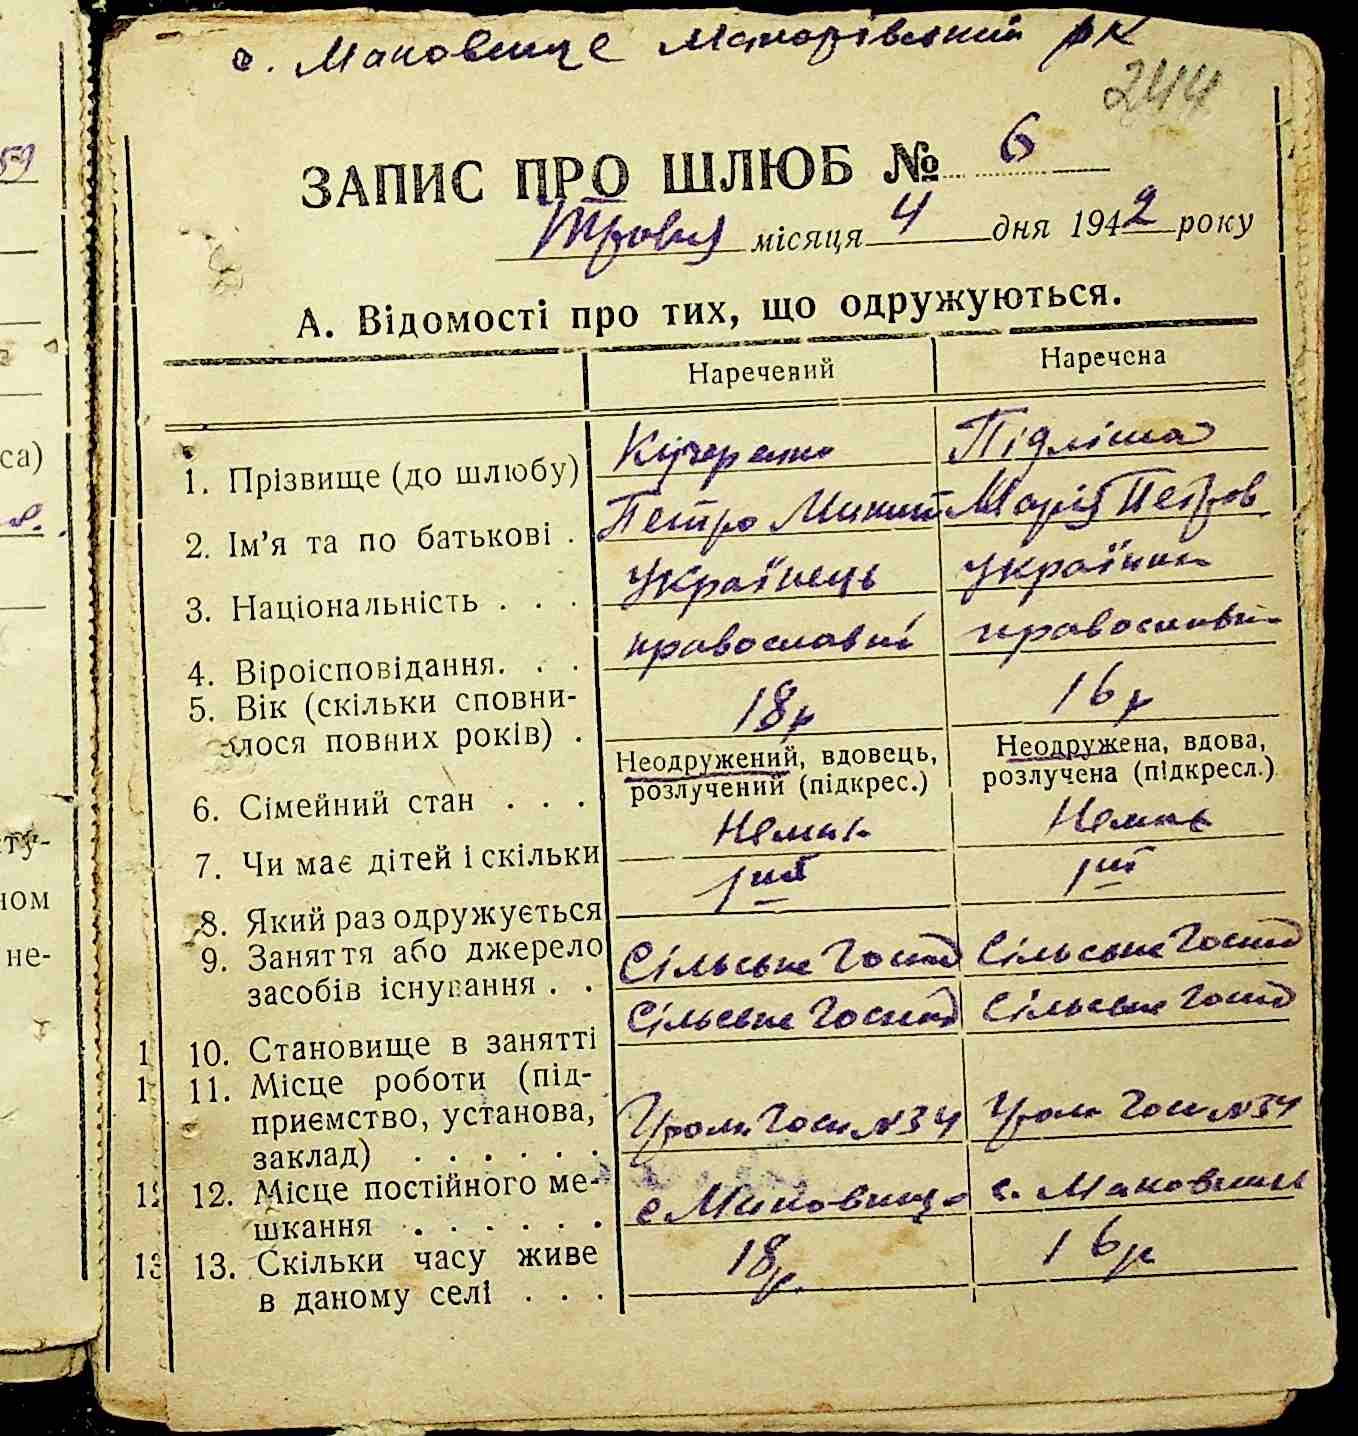 с. Маковище Макарівський рк
244
ЗАПИС ПРО ШЛЮБ № 6
Травня місяця 4 дня 1942 року
А. Відомості про тих, що одружуються.
Наречений Наречена
1. Прізвище (до шлюбу) Кучеренко Підліта
2. Ім'я та по батькові . Петро Микит Марія Петров
3. Національність . . . Українець українка
4. Віроісповідання. . . православні православні
5. Вік (скільки сповни-
лося повних років) . 18р 16р
6. Сімейний стан . . . Неодружений, вдовець, розлучений (підкрес.) Неодружена, вдова, розлучена (підкресл.)
7. Чи має дітей і скільки Немає Немає
8. Який раз одружується 1ий 1ий
9. Заняття або джерело
засобів існування . . Сільське Господ Сільське Госпд
10. Становище в занятті Сільське Господ Сільське Госпд
11. Місце роботи (під-
приємство, установа,
заклад) . . . . . . Гром. Госп №34 Гром Госп №34
12. Місце постійного ме-
шкання . . . . . . с. Маковище с. Маковище
13. Скільки часу живе
в даному селі . . . 18р. 16р
59
са)
ту-
ном
не-